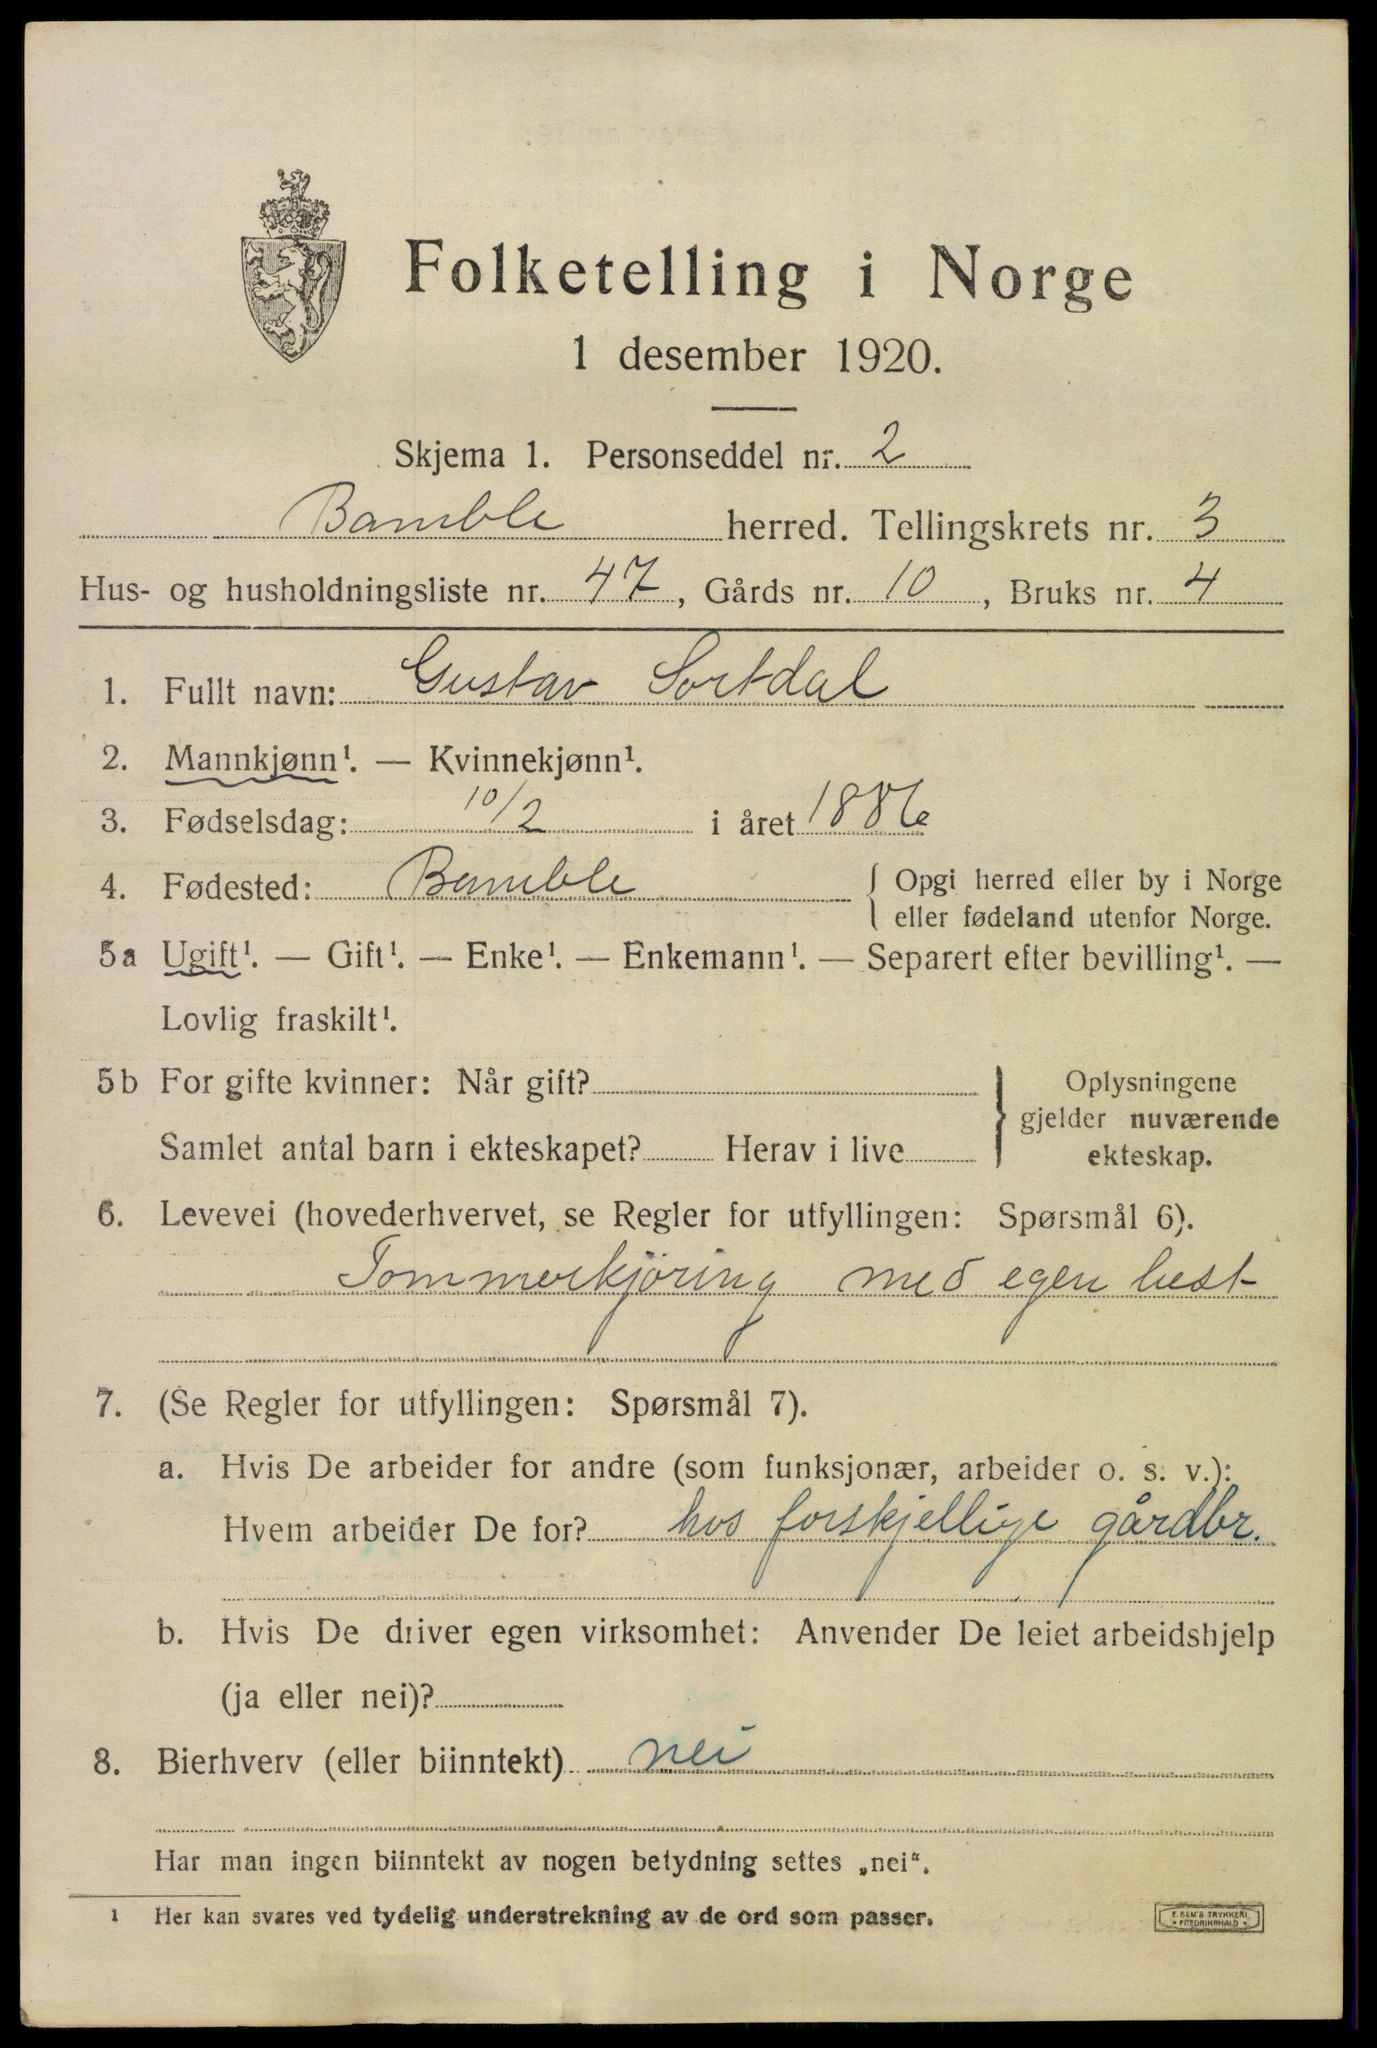 Folketelling i Norge
1 desember 1920.
Skjema 1. Personseddel nr. 2
Bamble herred. Tellingskrets nr. 3
Hus- og husholdningsliste nr. 47, Gårds nr. 10, Bruks nr. 4
1. Fullt navn: Gustav Sortdal
2. Mannkjønn¹. — Kvinnekjønn¹.
3. Fødselsdag: 10/2 i året 1886
4. Fødested: Bamble { Opgi herred eller by i Norge
eller fødeland utenfor Norge.
5a Ugift¹. — Gift¹. — Enke¹. — Enkemann¹. — Separert efter bevilling¹. —
Lovlig fraskilt¹.
5b For gifte kvinner: Når gift?
Samlet antal barn i ekteskapet? Herav i live
} Oplysningene
gjelder nuværende
ekteskap.
6. Levevei (hovederhvervet, se Regler for utfyllingen: Spørsmål 6).
Tommerkjöring med egen hest
7. (Se Regler for utfyllingen: Spørsmål 7).
a. Hvis De arbeider for andre (som funksjonær, arbeider o. s. v.):
Hvem arbeider De for? hos forskjellige gårdbr.
b. Hvis De driver egen virksomhet: Anvender De leiet arbeidshjelp
(ja eller nei)?
8. Bierhverv (eller biinntekt) nei
Har man ingen biinntekt av nogen betydning settes „nei“.
1 Her kan svares ved tydelig understrekning av de ord som passer.
E. SEM'S TRYKKERI
• FREDRIKSHALD •